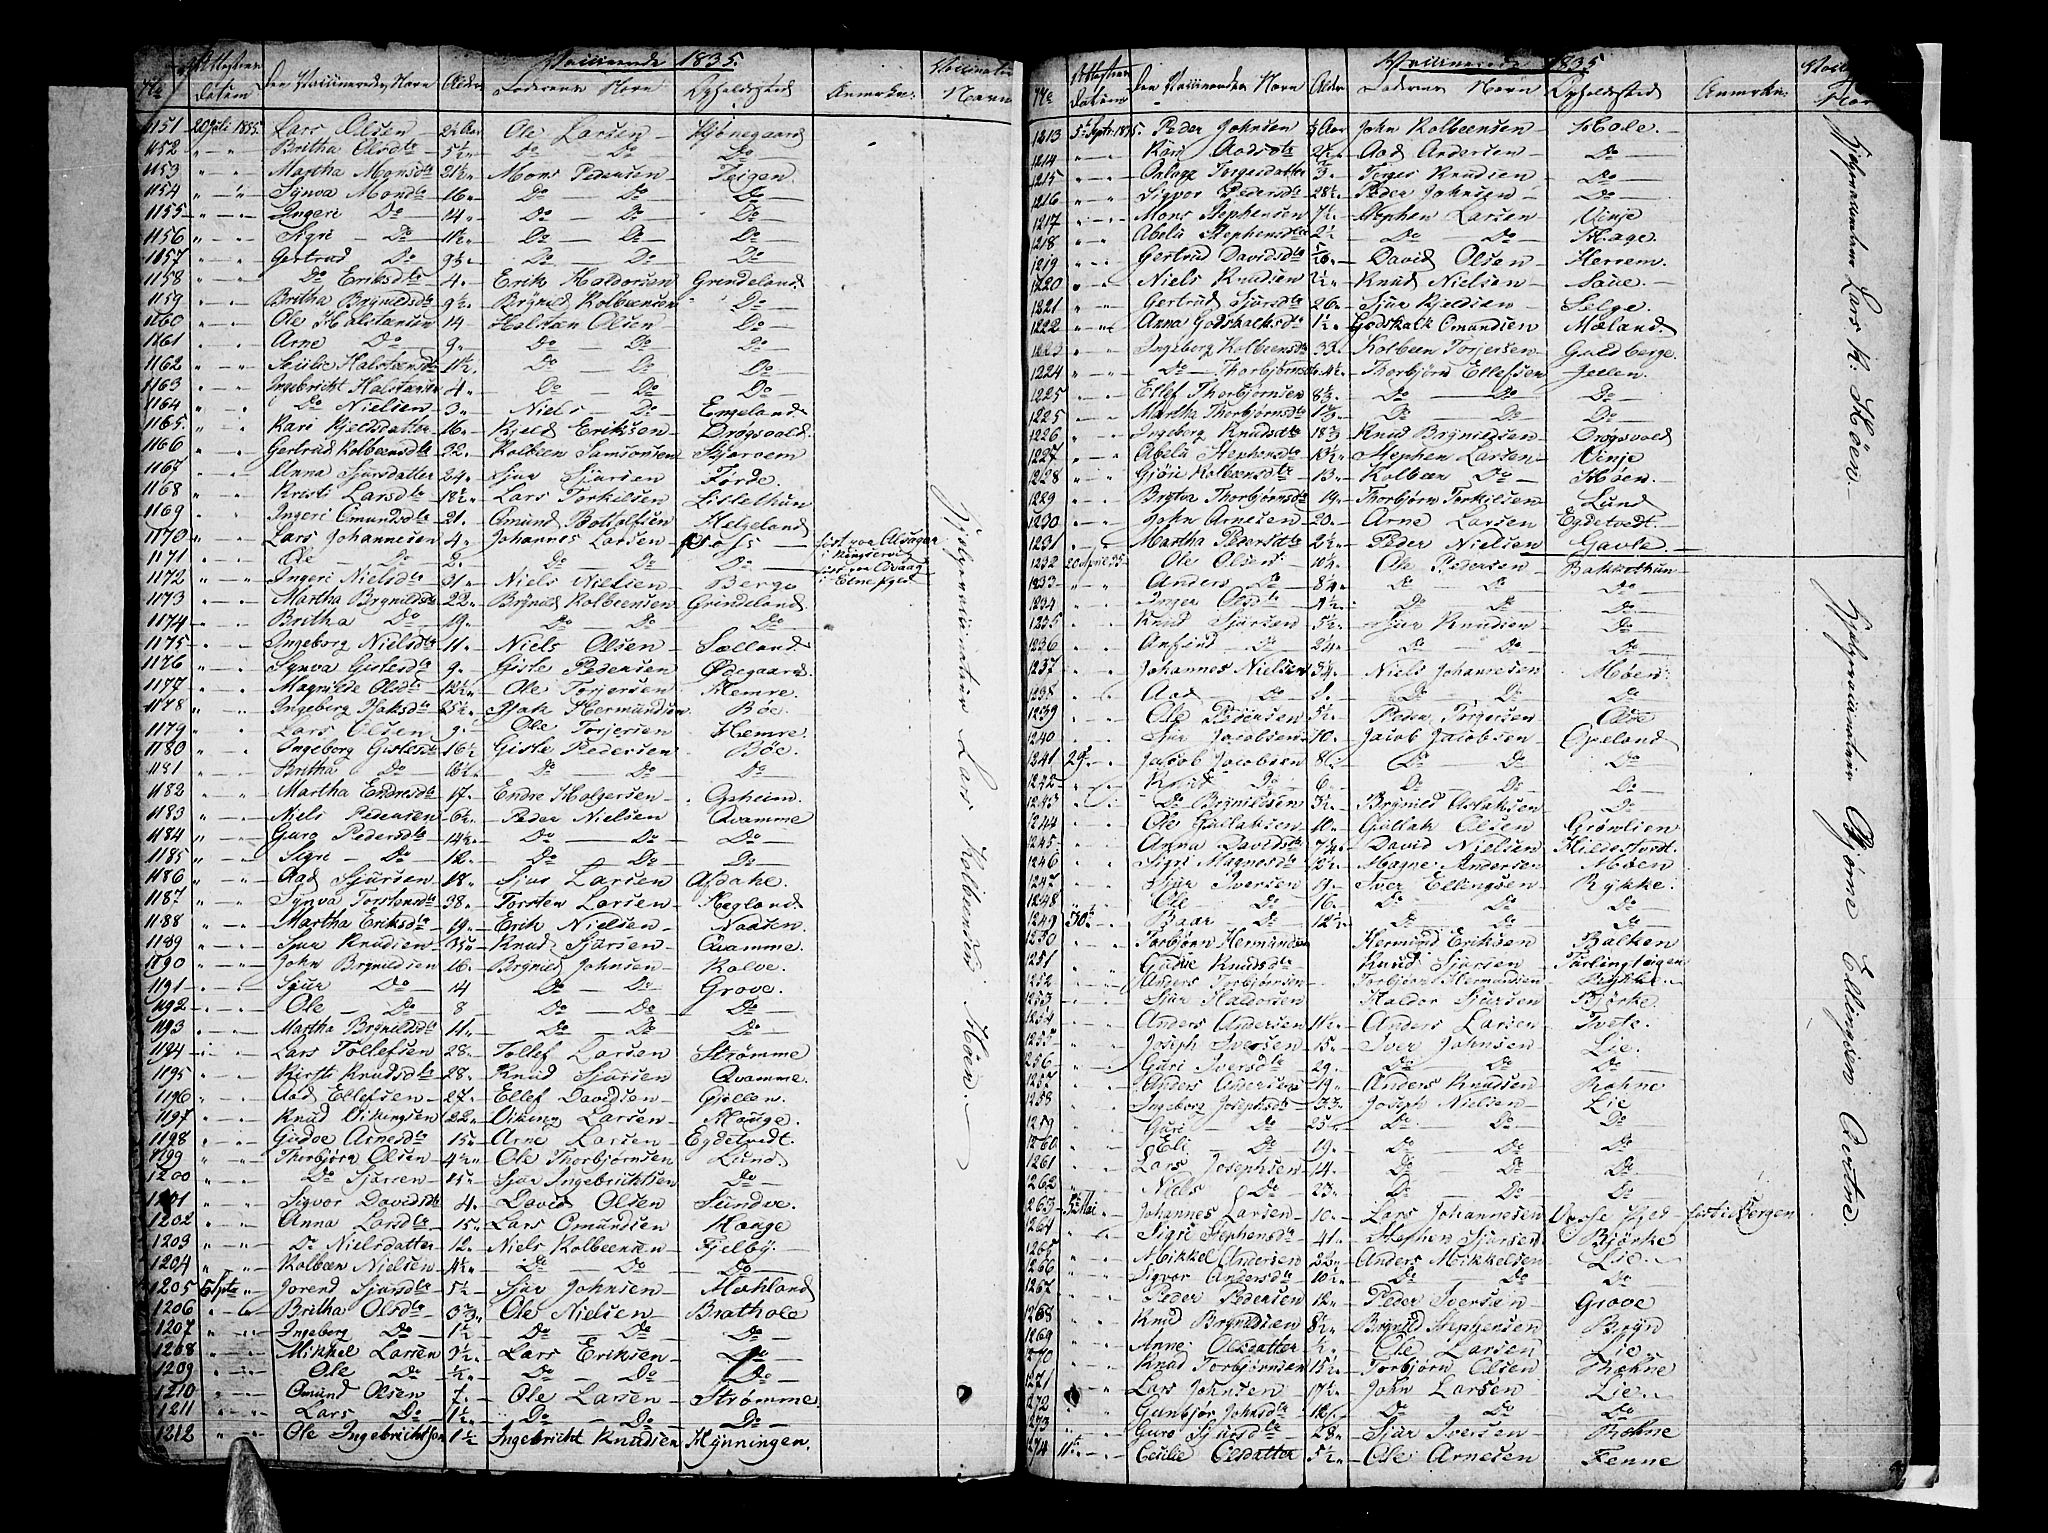 Vaccinerede 1835.
No Attestens Datum den Vaccineredes Navn Alder Faderens Navn Opholdsted Anmærkn: Vaccinateur Navn
1151 20 Juli 1835. Lars Olsen 2½ Aar Ole Larsen
1152 " " Britha Olsdtr 5½ " Do Do Do
1153 " " Martha Monsdtr 21½ " Mons Pedersen Teigen
1154 " " Synva Monsdtr 16 " Do Do Do
1155 " " Ingeri Do 14 " Do Do Do
1156 " " Sigri Do 11½ " Do Do Do
1157 " " Gertrud Do 9½ " Do Do Do
1158 " " Do Eriksdtr 4 " Erik Haldorsen Grindeland
1159 " " Britha Brynildsdtr 9½ " Brynild Kolbeensen Do
1160 " " Ole Halstensen 14 Halstan Olsen Do
1161 " " Arne Do 9 " Do Do Do
1162 " " Halsteensdtr 11½ " Do Do Do
1163 " " Ingebricht Halstensen 4 " Do Do Do
1164 " " Do Nielsen 3 " Niels Do Engeland
1165 " " Kari Kjeldsdatter 16 " Kjeld Eriksen Drøgsvold
1166 " " Gertrud Kolbeensdtr 22 " Kolbeen Samsonsen
1167 " " Anna Sjursdatter 24 " Sjur Sjursen Førde
1168 " " Kristi Larsdtr 18½ " Lars Torkelsen Littlethun
1169 " " Ingeri Omundsdtr 21 " Omund Bottolfsen Helgeland
1170 " " Lars Johannesen 4 " Johannes Larsen
1171 " " Ole Do 2 " Do Do Do
1172 " " Ingeri Nielsdtr 31 " Niels Nielsen Berge
1173 " " Martha Brynildsdtr 22 " Brynild Kolbeensen Grindeland
1174 " " Britha Do 19 " Do Do Do
1175 " " Ingeborg Nielsdtr 11 " Niels Olsen Sælland
1176 " " Synva Gistesdtr 9 " Giste Pedersen Ødegaard
1177 " " Magnilde Olsdtr 12½ " Ole Torjersen Hemre
1178 " " Ingeborg Isaksdtr 25½ " Isak Hermundsen Bøe
1179 " " Lars Olsen 9 " Ole Torjersen Hemre
1180 " " Ingeborg Gistesdtr 16½ Giste Pedersen Bøe
1181 " " Britha Do 18½ " Do Do Do
1182 " " Martha Endresdtr 17 " Endre Holgersen Opheim
1183 " " Niels Pedersen 6½ " Peder Nielsen Qvamme
1184 " " Guro Pedersdtr 14½ " Do Do Do
1185 " " Sigri Do 12 " Do Do Do
1186 " " Aad Sjursen 18 " Sjur Larsen Afdahl
1187 " " Synva Torstensdtr 38 " Torsten Larsen Hegland
1188 " " Martha Eriksdtr 19 " Erik Nielsen
1189 " " Sjur Knudsen 35 " Knud Sjursen Qvamme
1190 " " John Brynildsen 16 " Brynild Johnsen Rolve
1191 " " Sjur Do 14 Do Do Grove
1192 " " Ole Do 8 Do Do Do
1193 " " Martha Brynildsdtr 11 " Do Do Do
1194 " " Lars Tollefsen 28 " Tollef Larsen Strømme
1195 " " Kirsti Knudsdtr 28 " Knud Sjursen Qvamme
1196 " " Aad Ellefsen 27 " Ellef Davidsen Gjellen
1197 " " Knud Vikingsen 22 " Viking Larsen Houge
1198 " " Gudve Arnesdtr 15 " Arne Larsen Egdetvedt
1199 " " Thorbjørn Olsen 4½ " Ole Thorbjørnsen Lund
1200 " " Do Sjursen 15 " Sjur Ingebrichtsen Do
1201 " " Sigvor Davidsdtr 4 " David Olsen Sundve
1202 " " Anna Larsdtr 15 " Lars Omundsen Houge
1203 " " Do Nielsdatter 12 " Niels Kolbeensen Fjelby
1204 " " Kolbeen Nielsen 4½ " Do Do Do
1205 5 Septr " Jorend Sjursdtr 5½ Sjur Johnsen Hohland
1206 " " Britha Olsdtr Ole Nielsen Brathole
1207 " " Ingeborg Do 1½ Do Do Do
1208 " " Mikkel Larsen 3½ " Lars Eriksen Do
1209 " " Ole Do ½ " Do Do Do
1210 " " Omund Olsen 7 " Ole Larsen Strømme
1211 " " Lars Do 1½ " Do Do Do
1212 " " Ole Ingebrichtsen 1½ Ingebricht Knudsen Hynningen
Hjelpevaccinateur Lars Kolbeensen Møen
Vaccinerede 1835
No Attestens Datum den Vaccineredes Navn Alder Faderens Navn Opholdsted Anmærkn:
1213 5te Septr 1835. Peder Johnsen Aar John Kolbeensen Hole
1214 " " Kari Aadsdtr Aad Andersen Do
1215 " " Torgesdatter 3 " Torges Knudsen Do
1216 " " Sigvor Pedersdtr 28½ Peder Johnsen Do
1217 " " Mons Stephensen 7½ " Stephen Larsen Vinje
1218 " " Abelu Stephensdtr 2½ Do Do Hage
1219 " " Gertrud Davidsdtr David Olsen Herrem
1220 " " Niels Knudsen 2½ " Knud Nielsen Saue
1221 " " Gertrud Sjursdtr 26 " Sjur Kjeldsen Selge
1222 " " Anna Godskalksdtr 1½ " Godskalk Omundsen Mæland
1223 " " Ingeborg Kolbeensdtr 33 " Kolbeen Torjersen Guldberge
1224 " " Do Thorbjørnsdtr 4½ " Thorbjørn Ellefsen
1225 " " Ellef Thorbjørnsen 8½ " Do Do Do
1225 " " Martha Thorbjørnsdtr Do Do Do
1226 " " Ingeborg Knudsdtr Knud Brynildsen Drøgsvold
1227 " " Abelu Stephensdtr 13½ Stephen Larsen Vinje
1228 " " Gjøri Kolbeensdtr 13 " Kolbeen Do Møen
1229 " " Brita Thorbjørnsdtr 14 " Thorbjørn Torkilsen Lund
1230 " " John Arnesen 20 " Arne Larsen Egdetvedt
1231 " " Martha Pedersdtr 2½ " Peder Nielsen Gavle
1232 20 April 35 Ole Olsen 10½ " Ole Pedersen Bakkethun
1233 " " Anders Do 8¼ " Do Do Do
1234 " " Inger Olsdtr 4½ Do Do Do
1235 " " Knud Sjursen 5½ " Sjur Knudsen Do
1236 " " Anfind Do 2¼ " Do Do Do
1237 " " Johannes Nielsen 8¼ " Niels Johannesen Møen
1238 " " Aad Do Do Do Do
1239 " " Ole Pedersen 5½ " Peder Torgersen
1240 " " Sjur Jacobsen 10 " Jacob Jacobsen Opeland
1241 29de " Jacob Jacobsen Do Do Do
1242 " " Knud Do 6 " Do Do Do
1243 " " Do Brynildsen 3½ " Brynild Aslaksen Do
1244 " " Ole Gullaksen 10 " Gullak Olsen Grønlien
1245 " " Anna Davidsdtr 7¼ " David Nielsen Hildestvedt
1246 " " Sigri Magnesdtr 12½ " Magne Andersen Møen
1247 " " Sjur Iversen 19 " Iver Ellingsen Rykke
1248 " " Ole Do 16 " Do Do Do
1249 30te " Baar Do 12½ " Do Do Do
1250 Torbjørn Hermundsen Hermund Eriksen Balken
1251 " " Gudve Knudsdtr Knud Sjursen
1252 " " Anders Torbjørnsen Torbjørn Hermundsen Rykke
1253 " " Sjur Haldorsen Haldor Sjursen Bjørke
1254 " " Anders Andersen 11½ Anders Larsen Tvete
1255 " " Joseph Iversen 15 " Iver Johnsen Lie
1256 " " Guri Iversdtr 29 " Do Do Do
1257 " " Anders Andersen 19 " Anders Knudsen Røhne
1258 " " Ingeborg Josephsdtr 33 " Joseph Nielsen Lie
1259 " " Guri Do 25 " Do Do Do
1260 " " Eli Do 19 " Do Do Do
1261 " " Lars Josephsen 14 " Do Do Do
1262 " " Niels Do 23 " Do Do Do
1263 Mai Johannes Larsen 10 " Lars Johannesen født i Bergen
1264 " " Sigri Stephensdtr 41 " Stephen Sjursen Bjørke
1265 " " Mikkel Andersen 22 " Anders Mikkelsen Lie
1266 " " Sigvor Andersdtr 10½ " Do Do Do
1267 " " Peder Pedersen 12 " Peder Iversen Grove
1268 " " Knud Brynildsen 8½ " Brynild Stephensen Bryn
1269 " " Anne Olsdatter ½ " Ole Larsen Lie
1270 " " Knud Torbjørnsen 15½ " Torbjørn Olsen Røhne
1271 " " Lars Johnsen 17½ " John Larsen Lie
1272 " " Gunbjør Johnsdtr 12½ " Do Do Do
1273 " " Guro Sjursdtr 28 " Sjur Iversen Røhne
1274 11te " Cecilie Olsdatter 5½ " Ole Arnesen Fenne
Hjelpevaccinateur Lars K. Møen
Hjelpevaccinateur Bjørne Ellingsen Qvitne